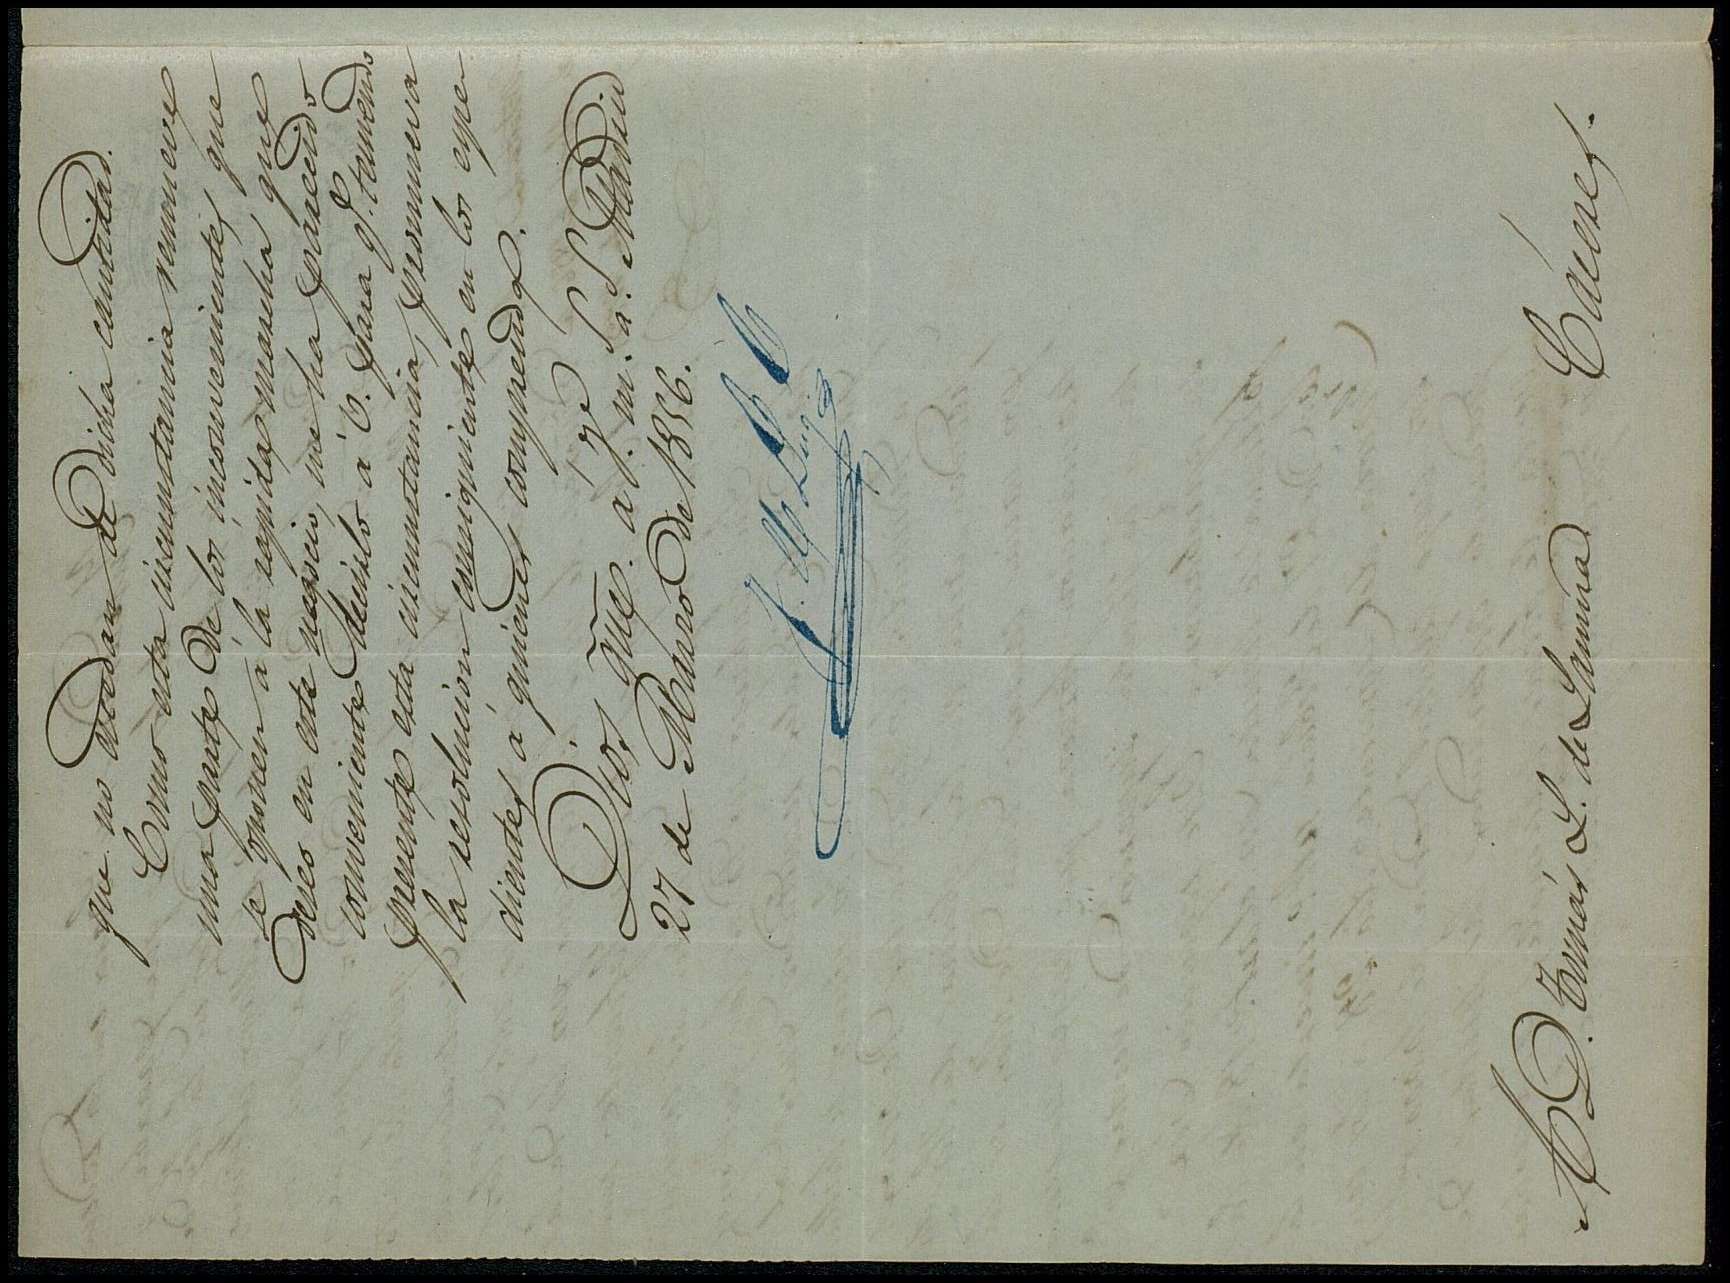 que no escedan de dicha cantidad.
Como esta circunstancia remueve
una parte de los inconvenientes que
se oponen á la rapida marcha que
deseo en este negocio, me ha parecido
conveniente decirlo á V. para qe. teniendo
presente esta circunstancia, promueva
la resolucion consiguiente en los espe-
dientes á quienes comprenda.
Dios gue. á V. m. a. Madrid
27 de Marzo de 1856.
A D. Tomás L. de
Cáceres.